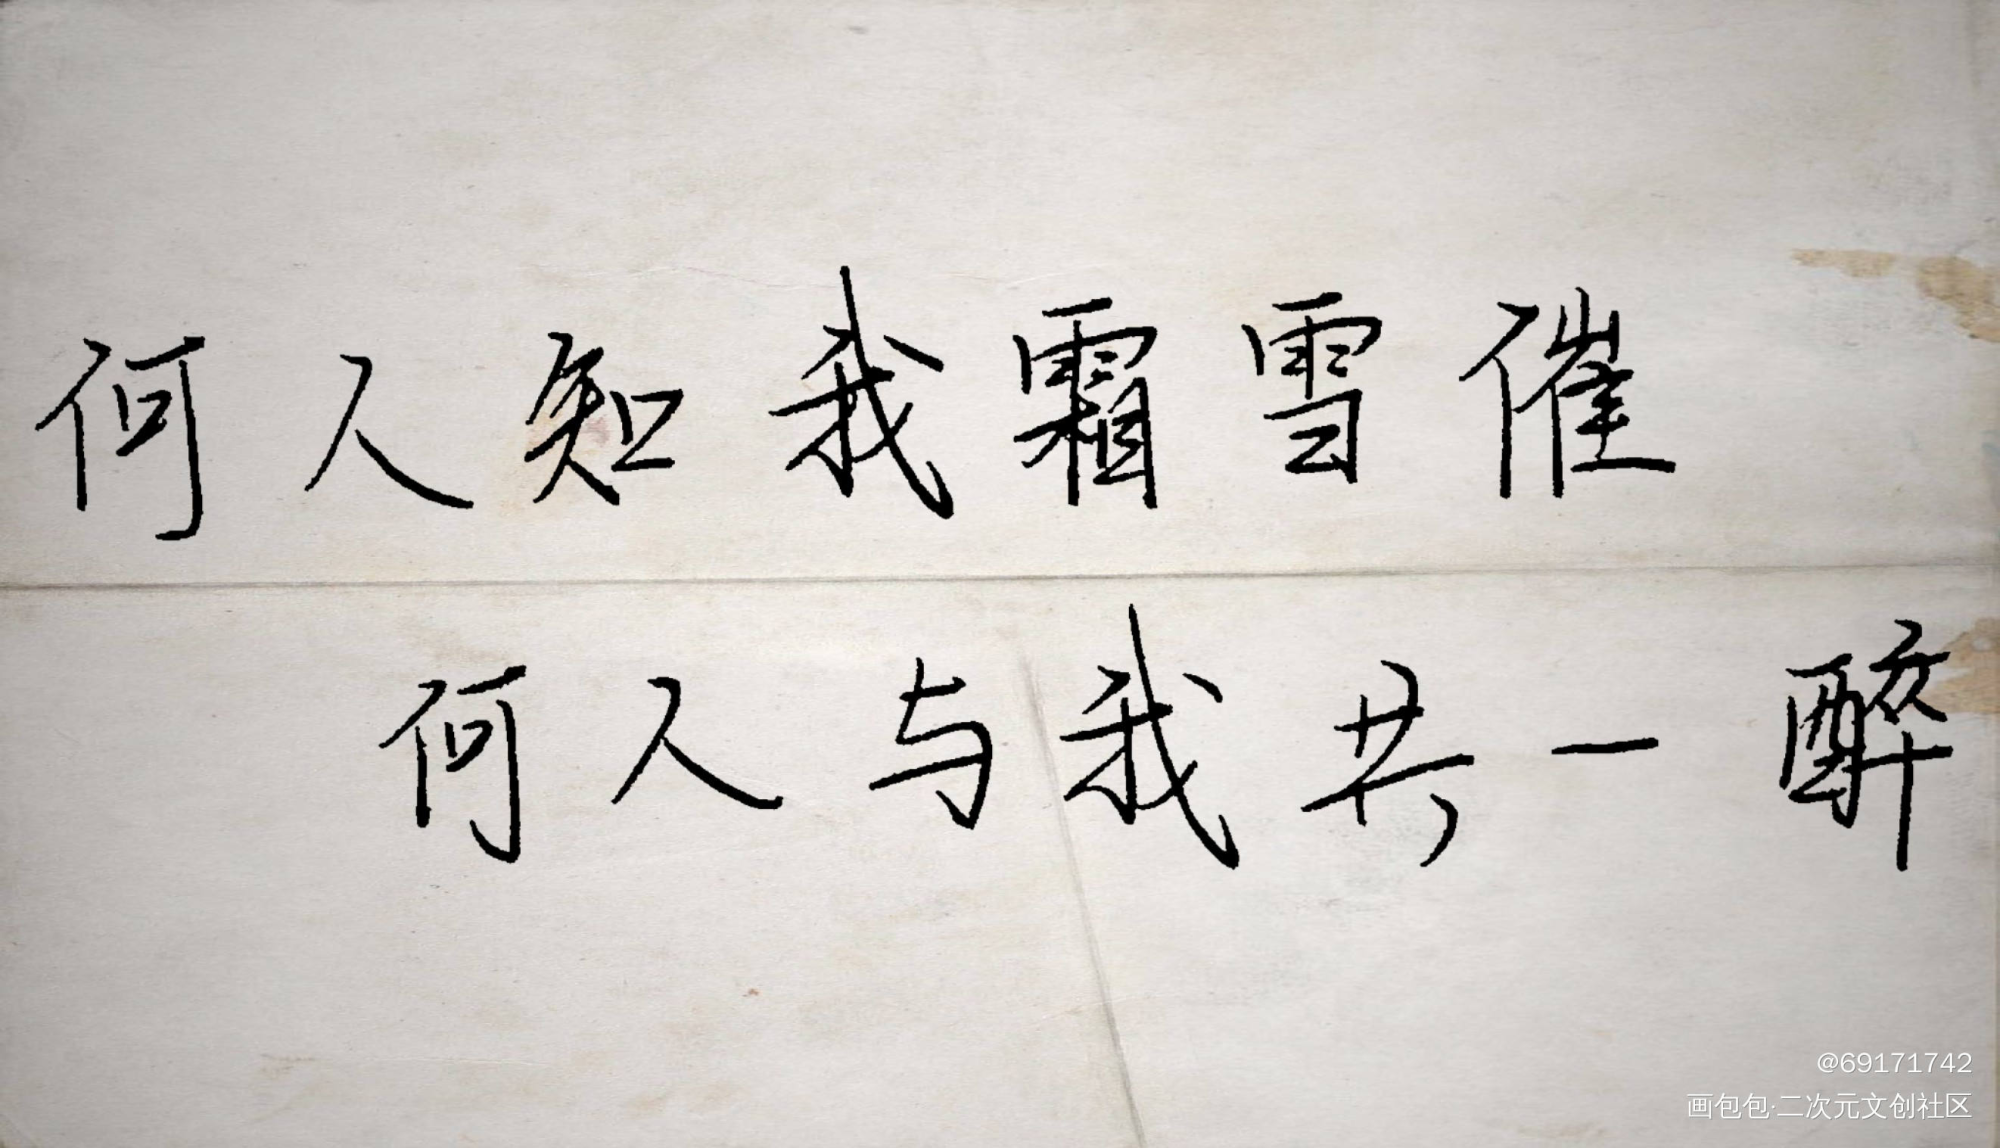 何人知我霜雪催
何人与我共一醉
@69171742
画包包·二次元文创社区